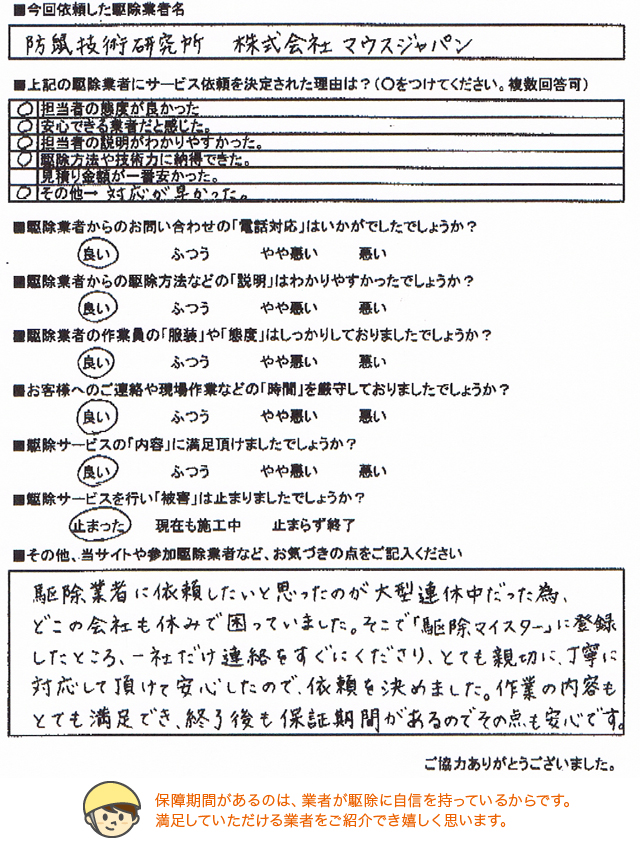 ■今回依頼した駆除業者名
防鼠技術研究所 株式会社マウスジャパン
■上記の駆除業者にサービス依頼を決定された理由は?(○をつけてください。複数回答可)
○ 担当者の態度が良かった
○ 安心できる業者だと感じた。
○ 担当者の説明がわかりやすかった。
○ 駆除方法や技術力に納得できた。
見積り金額が一番安かった。
○ その他→ 対応が早かった。
■駆除業者からのお問い合わせの「電話対応」はいかがでしたでしょうか?
良い ふつう やや悪い 悪い
■駆除業者からの駆除方法などの「説明」はわかりやすかったでしょうか?
良い ふつう やや悪い 悪い
■駆除業者の作業員の「服装」や「態度」はしっかりしておりましたでしょうか?
良い ふつう やや悪い 悪い
■お客様へのご連絡や現場作業などの「時間」を厳守しておりましたでしょうか?
良い ふつう やや悪い 悪い
■駆除サービスの「内容」に満足頂けましたでしょうか?
良い ふつう やや悪い 悪い
■駆除サービスを行い「被害」は止まりましたでしょうか?
止まった 現在も施工中 止まらず終了
■その他、当サイトや参加駆除業者など、お気づきの点をご記入ください
駆除業者に依頼したいと思ったのが大型連休中だった為、
どこの会社も休みで困っていました。そこで「駆除マイスター」に登録
したところ、一社だけ連絡をすぐにくださり、とても親切に、丁寧に
対応して頂けて安心したので、依頼を決めました。作業の内容も
とても満足でき、終了後も保証期間があるのでその点も安心です。
ご協力ありがとうございました。
保障期間があるのは、業者が駆除に自信を持っているからです。
満足していただける業者をご紹介でき嬉しく思います。